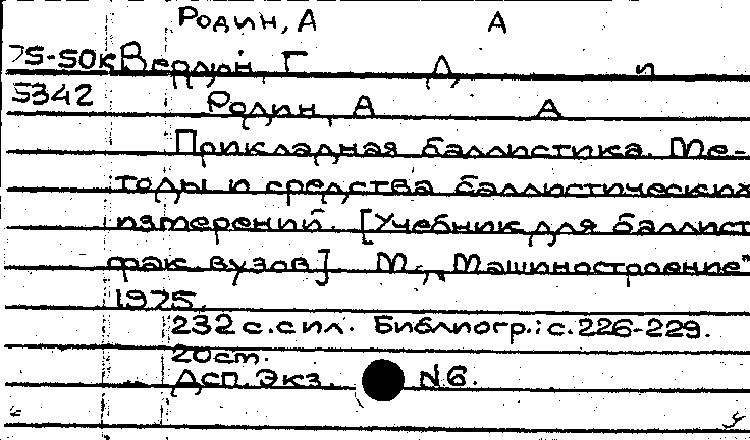 Родин, А А
75-50к Верлин, Г Д и
5342 Родин, А А
Прикладная баллистика. Ме-
тоды и средства баллистических
измерений. [Учебник для баллист
фак. вузов]. М., „Машиностроение"
1975.
232 с. с ил. Библиогр.: с. 226-229.
20 см.
Дсп. Экз. N6.